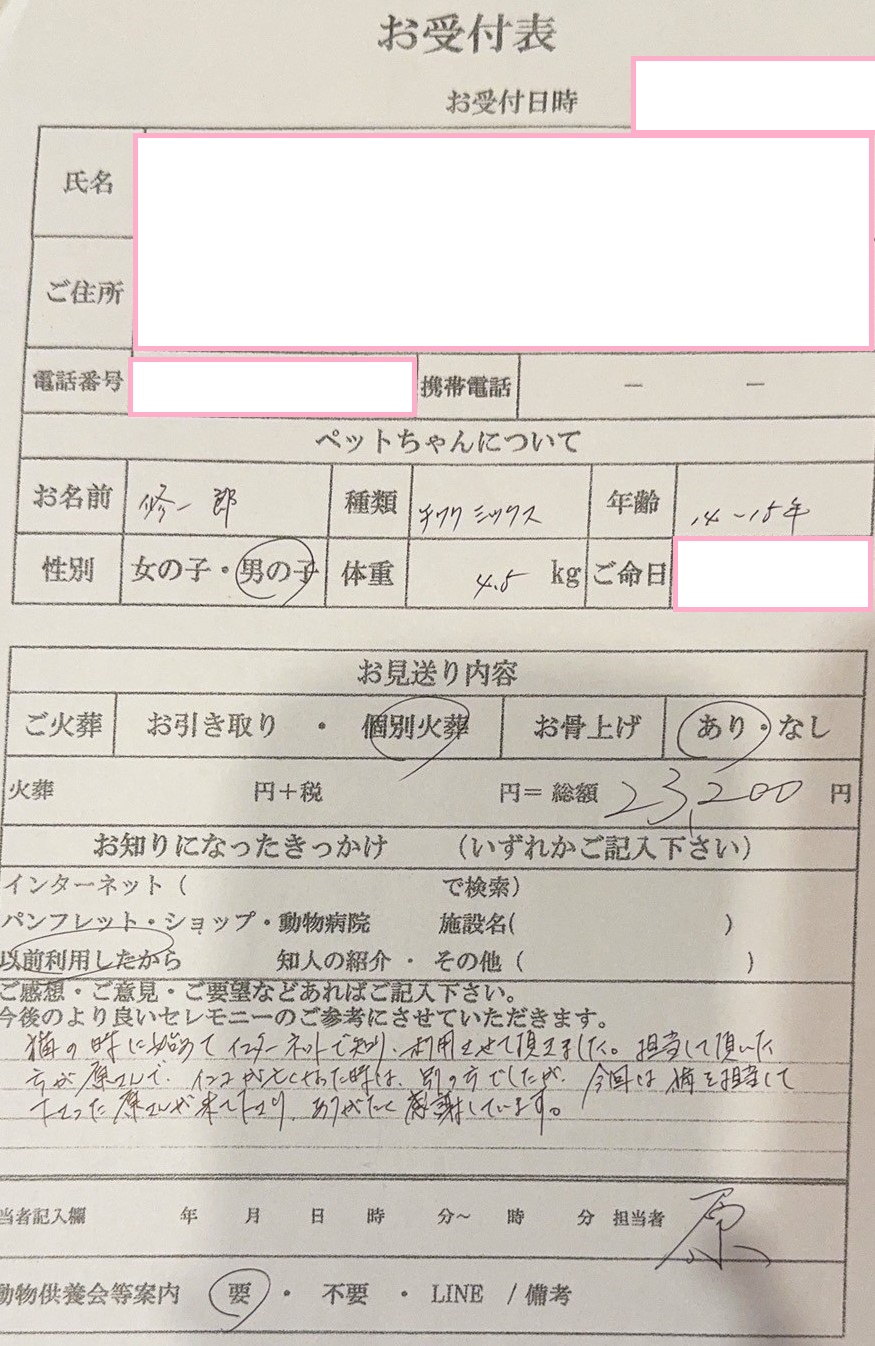 お受付表
お受付日時
氏名
ご住所
電話番号 携帯電話 ー ー
ペットちゃんについて
お名前 修一郎 種類 チワワミックス 年齢 14〜15年
性別 女の子・男の子 体重 4.5 kg ご命日
お見送り内容
ご火葬 お引き取り ・ 個別火葬 お骨上げ あり・なし
火葬 円＋税 円＝ 総額 23,200 円
お知りになったきっかけ （いずれかご記入下さい）
インターネット（ で検索）
パンフレット・ショップ・動物病院 施設名( )
以前利用したから 知人の紹介 ・ その他（ ）
ご感想・ご意見・ご要望などあればご記入下さい。
今後のより良いセレモニーのご参考にさせていただきます。
猫の時に始めてインターネットで知り、利用させて頂きました。担当して頂いた
方が原さんで、インコが亡くなった時は、別の方でしたが、今回は猫を担当して
下さった原さんが来て下さり、ありがたく感謝しています。
当者記入欄 年 月 日 時 分〜 時 分 担当者 原
動物供養会等案内 要 ・ 不要 ・ LINE / 備考